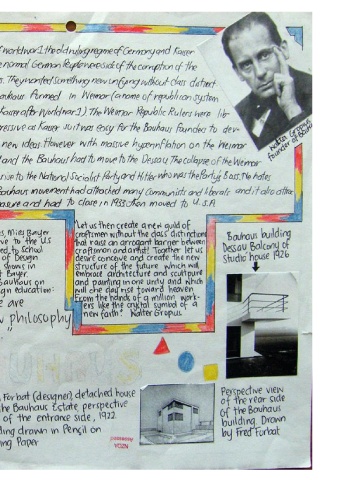 f world war 1 the old ruling regime of Germany and Kaiser
e normal German People were outside of the corruption of the
s. They wanted something new unifying without class distinct
auhaus formed in Weimar (a name of republican system
after world war 1) The Weimar Republic Rulers were lib
pressive as Kaiser so it was easy for the Bauhaus founders to dev
new ideas. However with massive hyperinflation on the Weimar
and the Bauhaus had to move to the Dessau. The collapse of the Weimar
to the National Socialist Party and Hitler who was the Party's Boss. He hates
Bauhaus movement had attached many Communists and liberals and it also
and had to close in 1933 then moved to U.S.A
Walter Gropius
founder of Bauh
ve to the U.S
to School
of Design
shows in
Bayer
Bauhaus on
ign education:
e are
philosophy
"
Let us then create a new guild of
craftsmen without the class distinctions
that raise an arrogant barrier between
craftsman and artist! Together let us
desire conceive and create the new
structure of the future which will
embrace architecture and sculpture
and painting in one unity and which
will one day rise toward heaven
from the hands of a million work-
ers like the crystal symbol of a
new faith. Walter Gropius
Bauhaus building
Dessau Balcony of
Studio house 1926
Forbat (designer), detached house
he Bauhaus Estate, perspective
of the entrance side, 1922.
ding drawn in Pencil on
ing Paper
Perspective view
of the rear side
of the Bauhaus
building. Drawn
by Fred Forbat